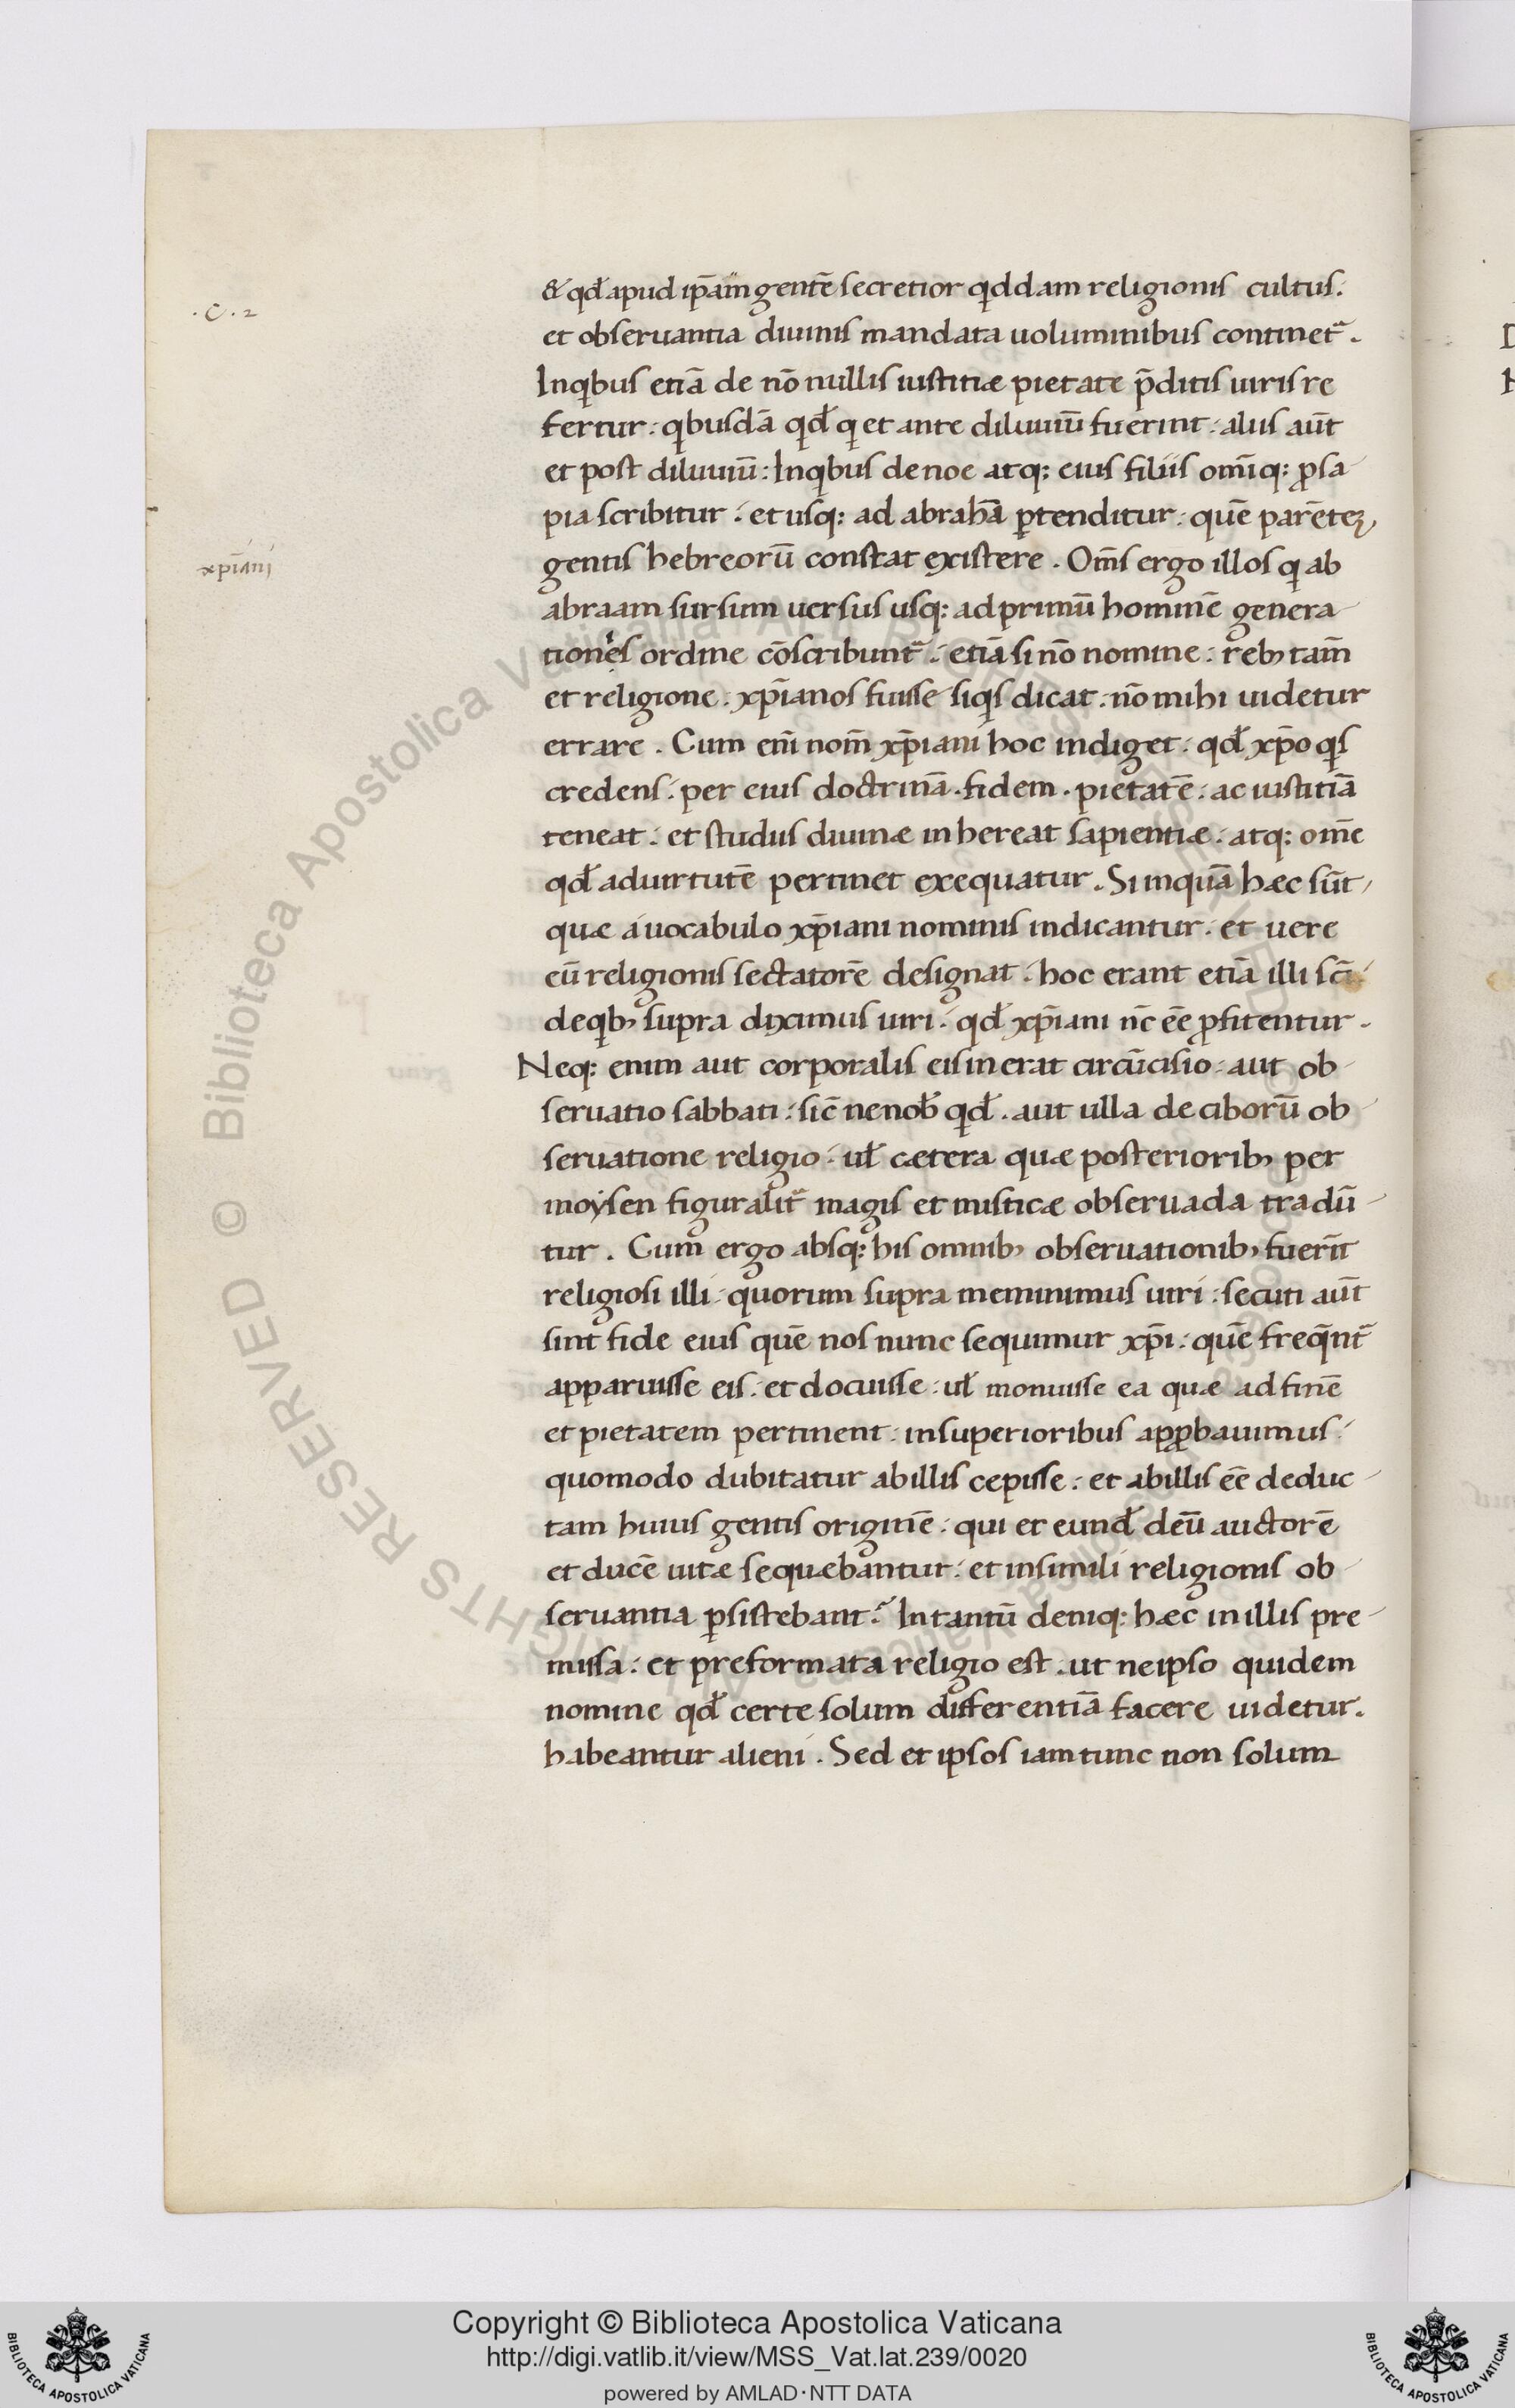 .C.2
xp̄iani
& qđ apud ip̄am gentē secretior qiddam religionis cultus.
et obseruantia diuinis mandata uoluminibus continet᷑.
Inqibus etiā de nōnullis iustitiæ pietate p̄ditis uiris re
fertur: qibusdā qđ qi et ante diluuiū fuerint: aliis aūt
et post diluuiū: Inqibus de noe atq: eius filiis om̄iq: ꝓsa-
pia scribitur: et usq: ad abrahā ꝑtenditur: quē parētē
gentis hebreorū constat existere. Om̄s ergo illos qi ab
abraam sursum uersus usq: ad primū hominē genera-
tiones ordine cōscribunt᷑: etiā si nō nomine: reb; tam̄
et religione. xp̄ianos fuisse siqis dicat. nō mihi uidetur
errare. Cum em̄ nom̄ xp̄iani hoc indiget: qđ xp̄o qis
credens: per eius doctrinā. fidem. pietatē: ac iustitiā
teneat: et studiis diuinæ inhereat sapientiæ: atq: om̄e
qđ aduirtutē pertinet exequatur. Si inquā hæc sūt,
quæ a uocabulo xp̄iani nominis indicantur. et uere
eū religionis sectatorē designat: hoc erant etiā illi sc̄i
deqib; supra diximus uiri: qđ xp̄iani nc̄ eē ꝓfitentur.
Neq: enim aut corporalis eis inerat circūcisio. aut ob-
seruatio sabbati: sic̄ ne nob̄ qid̄. aut ulla de ciborū ob-
seruatione religio: uł cætera quæ posteriorib; per
moysen figuralit᷑ magis et misticæ obseruada tradū-
tur. Cum ergo absq: his omnib; obseruationib; fuerīt
religiosi illi: quorum supra meminimus uiri: secuti aūt
sint fide eius quē nos nunc sequimur xp̄i: quē freq̄nt᷑
apparuisse eis: et docuisse: uł monuisse ea quæ ad finē
et pietatem pertinent: insuperioribus apꝓbauimus:
quomodo dubitatur ab illis cepisse: et ab illis eē deduc-
tam huius gentis originē: qui et eunđ deū auctorē
et ducē uitæ sequæbantur: et insimili religionis ob-
seruantia ꝑsistebant᷑: In tantū deniq: hæc in illis pre-
missa: et preformata religio est. ut ne ipso quidem
nomine qđ certe solum differentiā facere uidetur.
habeantur alieni. Sed et ipsos iam tunc non solum
Biblioteca Apostolica Vaticana
Copyright © Biblioteca Apostolica Vaticana
http://digi.vatlib.it/view/MSS_Vat.lat.239/0020
powered by AMLAD·NTT DATA
BIBLIOTECA APOSTOLICA VATICANA
BIBLIOTECA APOSTOLICA VATICANA